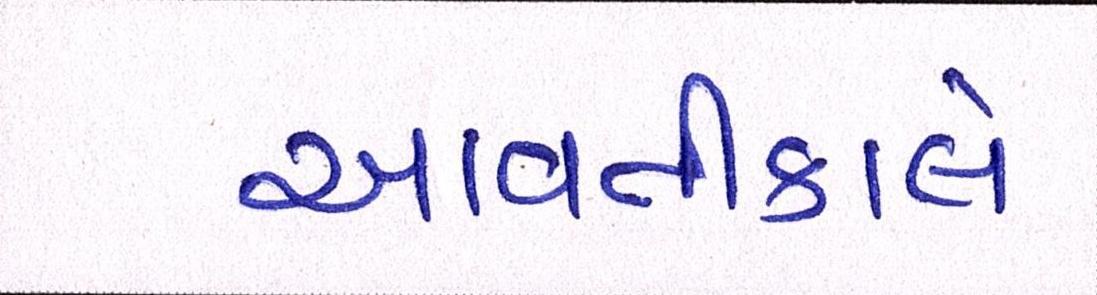 આવતીકાલે